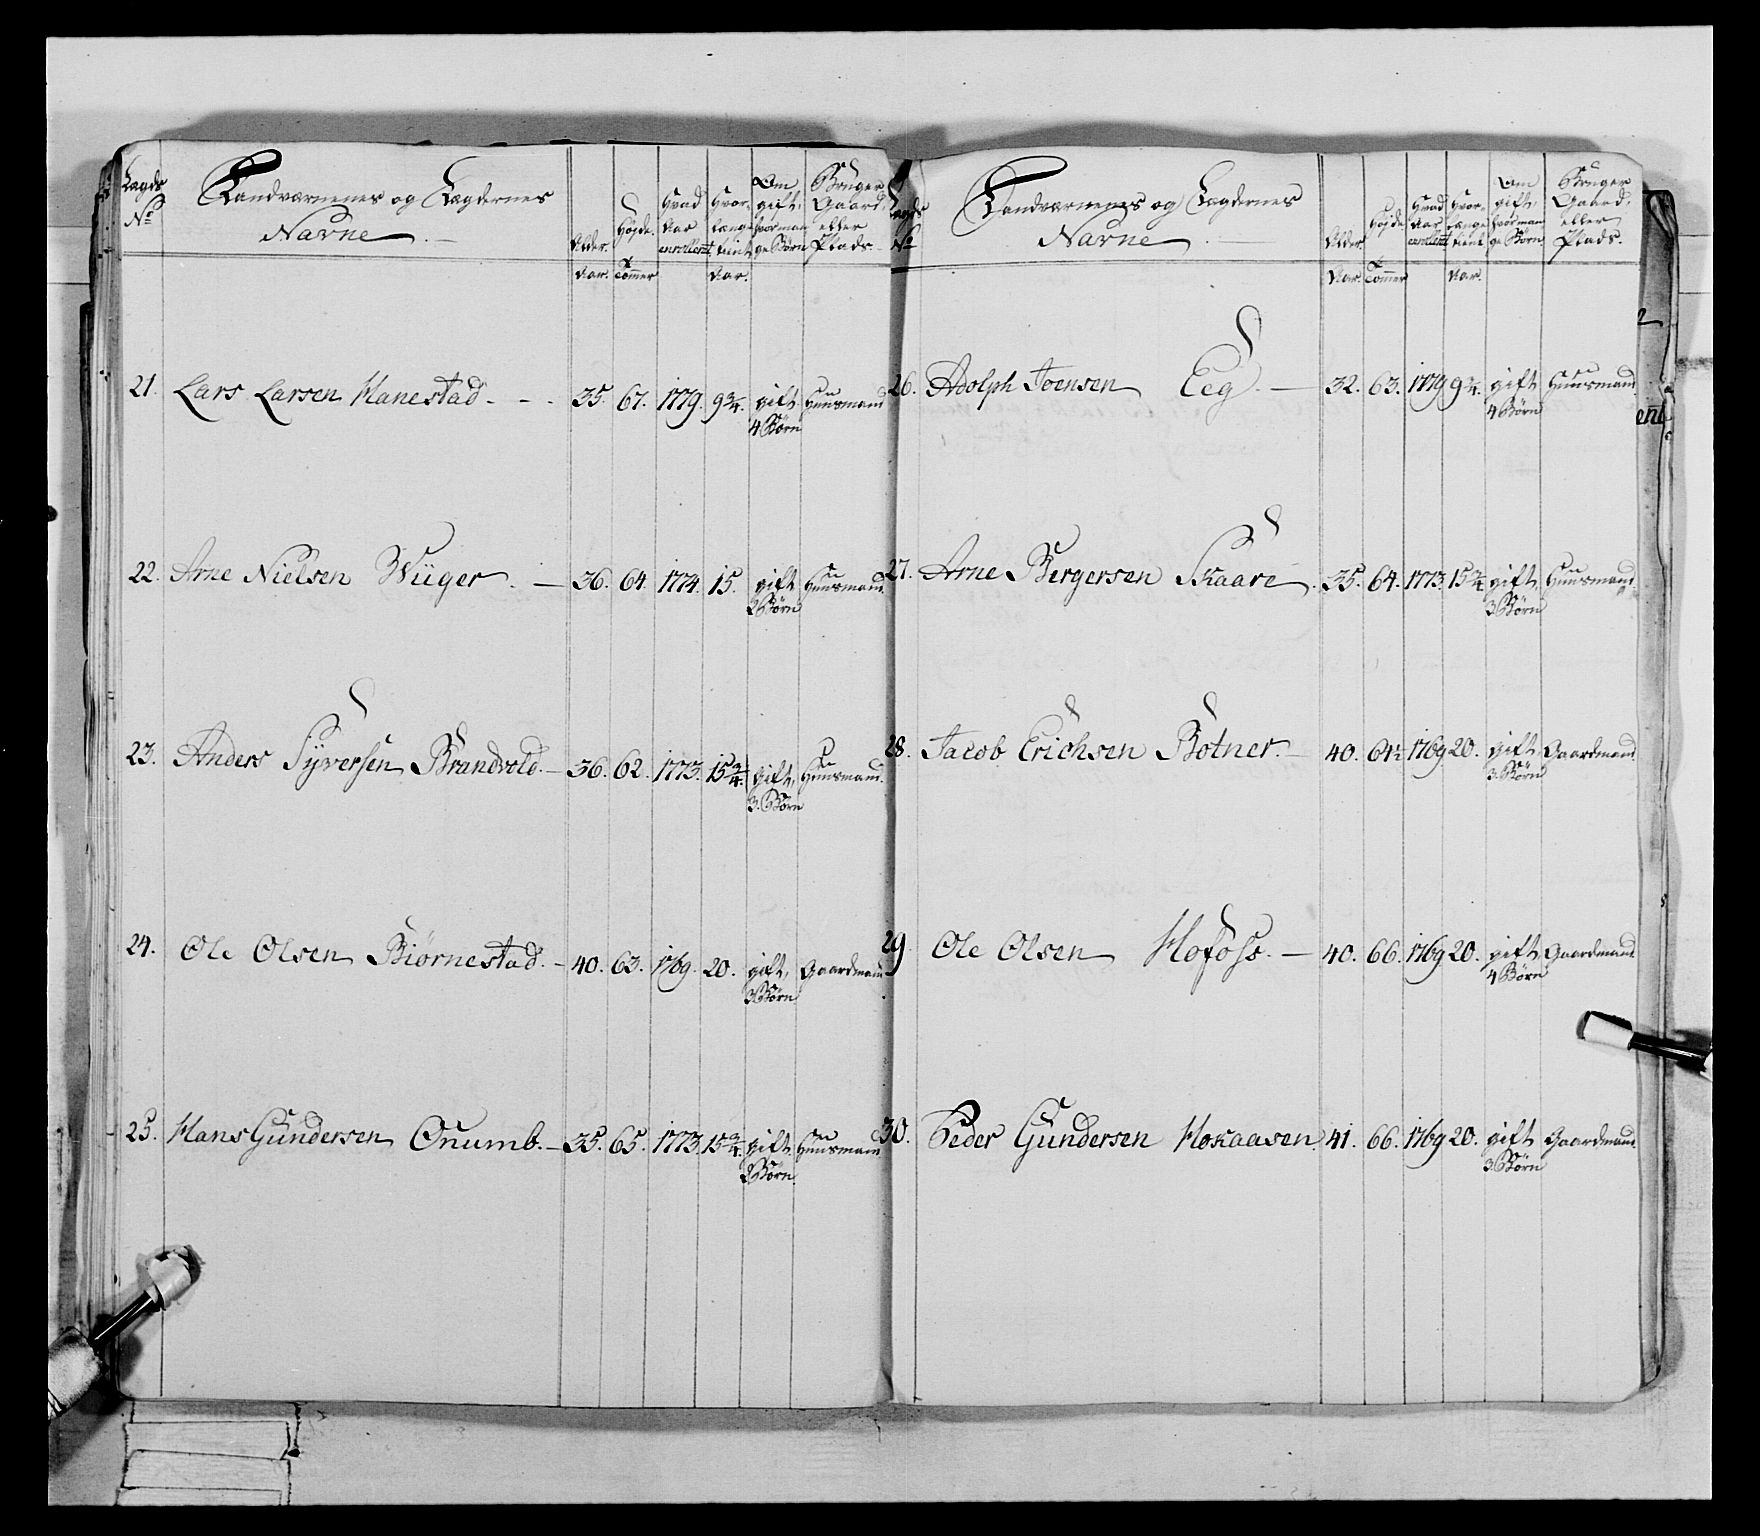 Lægds No
Landværnenes og Lægdernes Navne.
Alder. Aar.
Højde. Tommer
Hvad Aar enrollert
Hvor længe tient Aar.
Om gift, hvor mange Børn
Bruger Gaard, eller Plads.
21. Lars Larsen Hanestad. - - 35. 67. 1779. 9 3/4. gift Huusmand
4 Børn
22. Arne Nielsen Wüger. — 36. 64. 1774. 15. gift Huusmand.
2 Børn
23. Anders Syversen Brandvold. — 36. 62. 1773. 15 3/4. gift, Huusmand.
3. Børn
24. Ole Olsen Biørnestad. — 40. 63. 1769. 20. gift, Gaardmand
3 Børn
25. Hans Gundersen Onumb. — 35. 65. 1773. 15 3/4. gift Huusmand.
2 Børn.
Lægds No
Landværnenes og Lægdernes Navne.
Alder. Aar.
Højde. Tommer
Hvad Aar enrollert
Hvor længe tient Aar.
Om gift, hvor mange Børn
Bruger Gaard, eller Plads.
26. Adolph Joensen Eeg. — 32. 63. 1779 9 3/4. gift Huusmand.
4 Børn
27. Arne Bergersen Skaare. 35. 64. 1773. 15 3/4 gift, Huusmand.
3 Børn
28. Jacob Erichsen Botner. — 40. 61 1/2 1769 20. gift Gaardmand.
3 Børn
29. Ole Olsen Hofoss. — 40. 66. 1769 20. gift Gaardmand.
4 Børn
30. Peder Gundersen Hokaasen. 41. 66. 1769 20. gift Gaardmand.
3 Børn